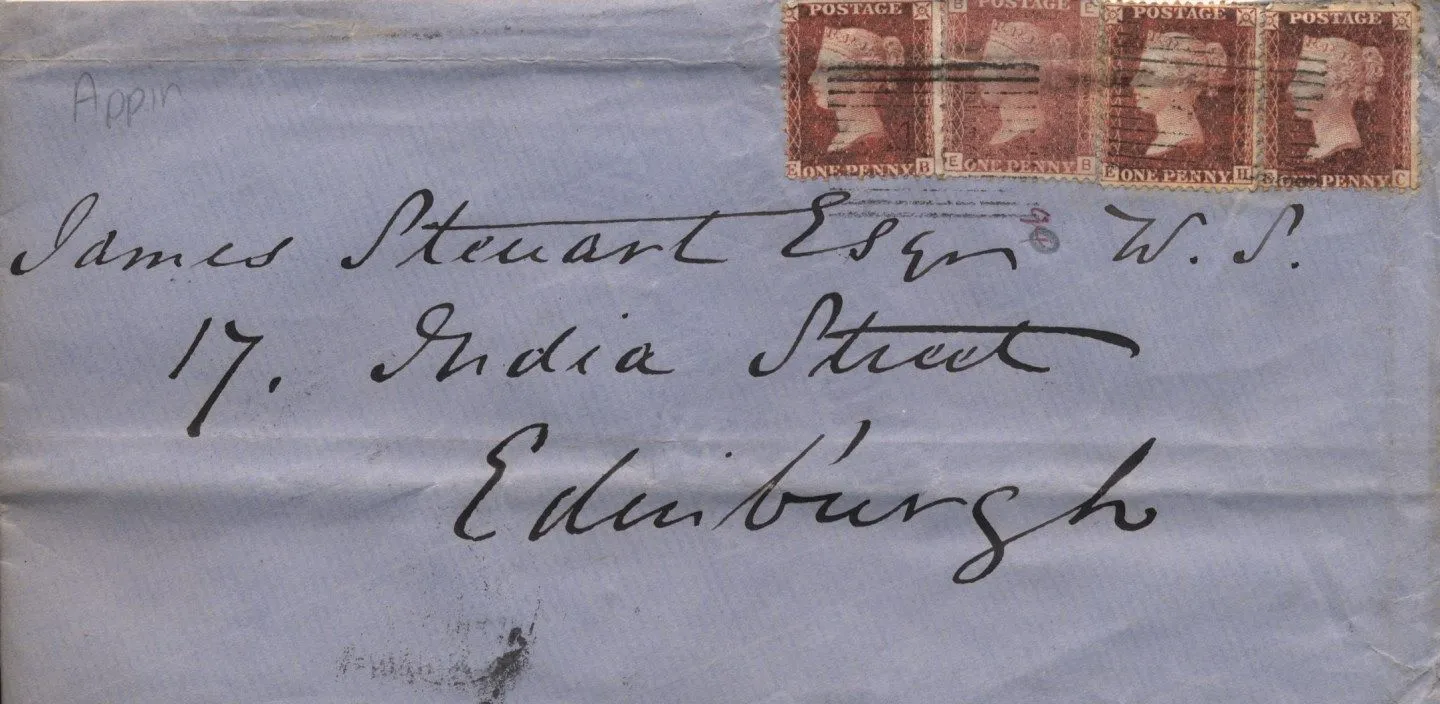 POSTAGE
E ONE PENNY B
B POSTAGE E
E ONE PENNY B
POSTAGE
E ONE PENNY H
POSTAGE
PENNY C
Appin
James Steuart Esqr W. S.
17. India Street
Edinburgh